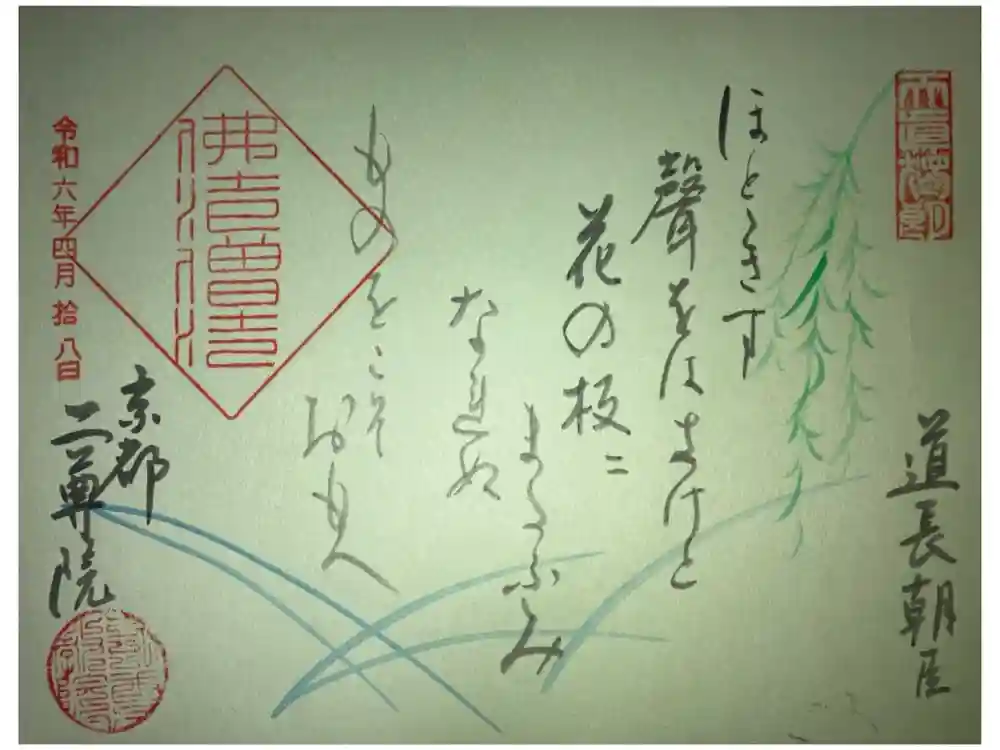 道長朝臣
ほとゝきす
聲をはきけと
花の枝ニ
またふみ
なれぬ
ものをこそ
おもへ
令和六年四月拾八日
京都
二尊院